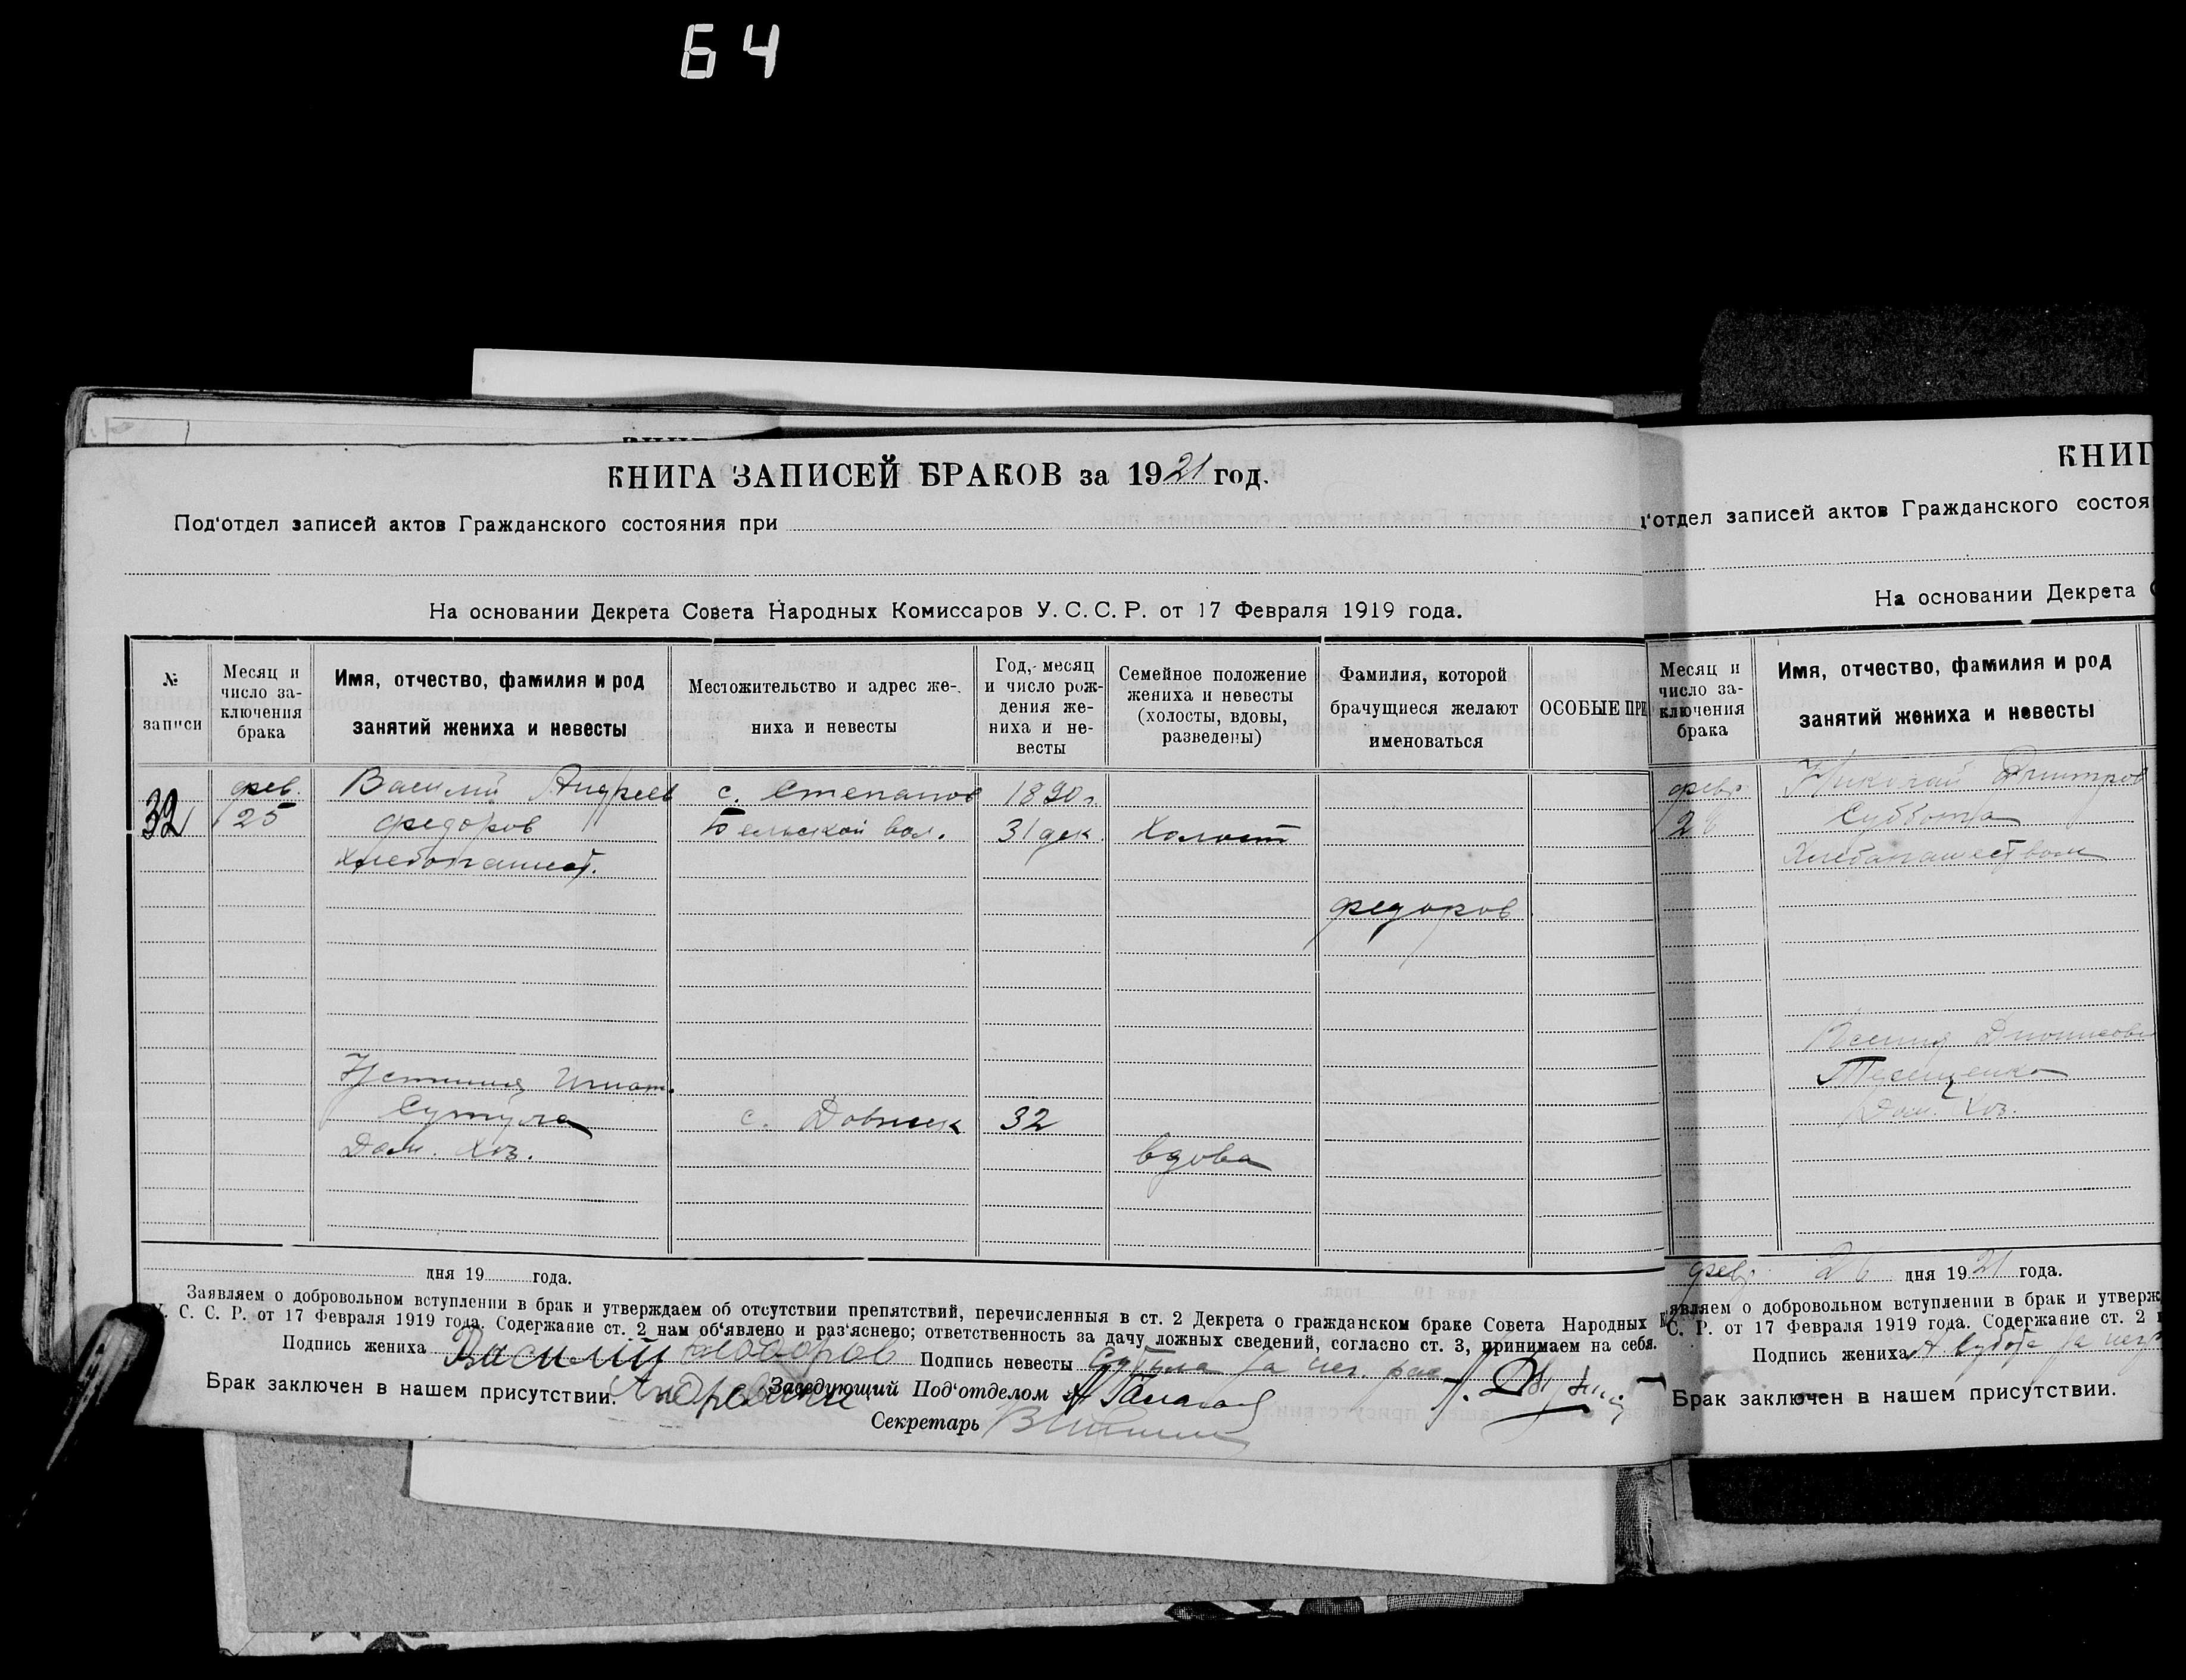 64
КНИГА ЗАПИСЕЙ БРАКОВ за 1921 год.
Под'отдел записей актов Гражданского состояния при
На основании Декрета Совета Народных Комиссаров У. С. С. Р. от 17 Февраля 1919 года.
№ записи
Месяц и число за-
ключения брака
Имя, отчество, фамилия и род
занятий жениха и невесты
Местожительство и адрес же-
ниха и невесты
Год, месяц
и число рож-
дения же-
ниха и не-
весты
Семейное положение
жениха и невесты
(холосты, вдовы,
разведены)
Фамилия, которой
брачущиеся желают
именоваться
ОСОБЫЕ ПРИ
32
фев.
25
Василий Андреев
Федоров
Хлебопашест.
с. Степанов
Бельской вол.
1890 г
31 дек.
Холост
Федоров
Устиния Игнат.
Сутула
Дом. Хоз.
с. Довжик
32
вдова
дня 19 года.
Заявляем о добровольном вступлении в брак и утверждаем об отсутствии препятствий, перечисленныя в ст. 2 Декрета о гражданском браке Совета Народных К
У. С. С. Р. от 17 Февраля 1919 года. Содержание ст. 2 нам об'явлено и раз'яснено; ответственность за дачу ложных сведений, согласно ст. 3, принимаем на себя.
Подпись жениха Василий Подпись невесты за нег. рас
Брак заключен в нашем присутствии. Заведующий Под'отделом
Секретарь
КНИГ
'отдел записей актов Гражданского состоя
На основании Декрета С
Месяц и
число за-
ключения
брака
Имя, отчество, фамилия и род
занятий жениха и невесты
февр.
26
Николай Дмитров
Суббота
Хлебопашеством
Ксения Дионисов
Терещенко
Дом. Хоз.
февр. 26 дня 1921 года.
являем о добровольном вступлении в брак и утверж
С. Р. от 17 Февраля 1919 года. Содержание ст. 2
Подпись жениха за негр
Брак заключен в нашем присутствии.